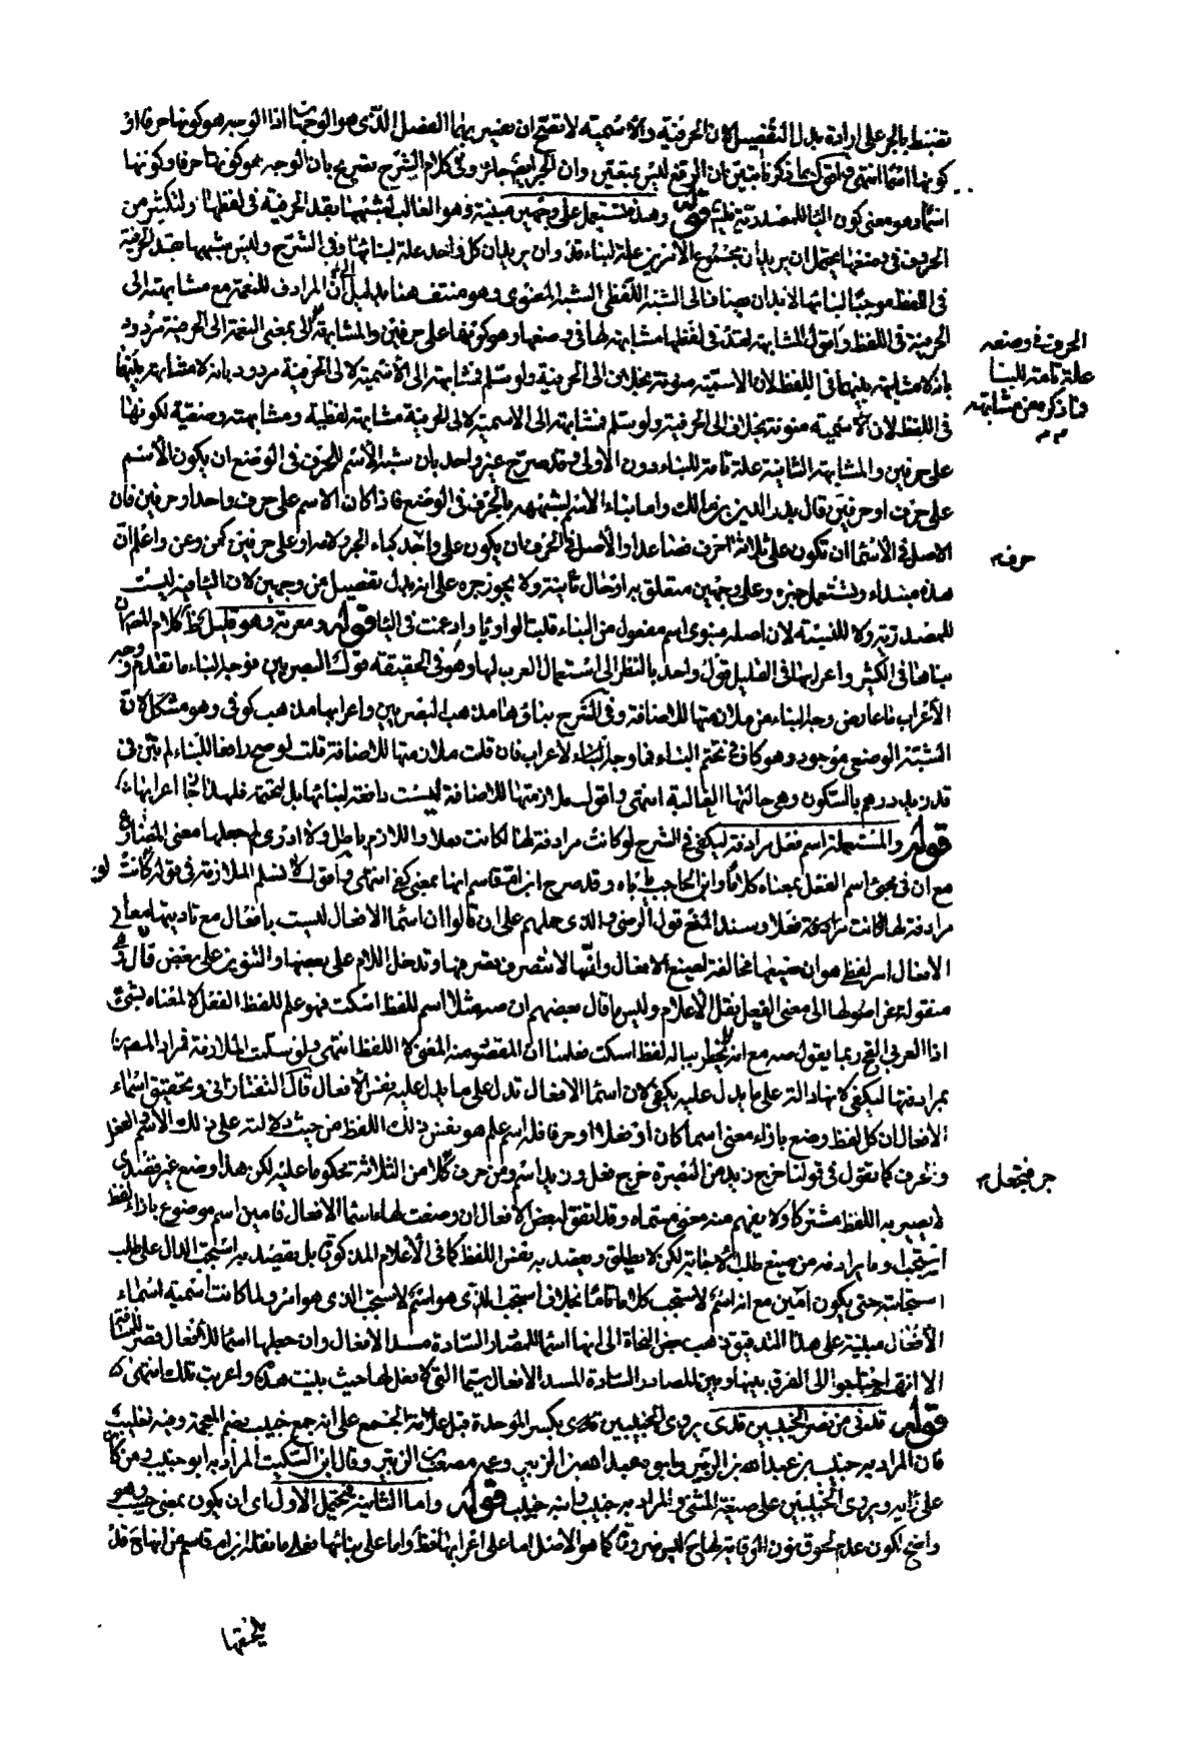 تضبط بالجر على ارادة بدل التفصيل لان الحرفية والاسمية لا تصح ان يفسر بهما المفصل الذى هو الوجهان اذ الوجه هو كونها حرفا او
كونها اسما انتهى ان الرفع ليس بمتعين وان الجر ايضا جائز وفى كلام الشرح تصريح بان الوجه هو كونها حرفا وكونها
اسما وهو معنى كون اليا للمصدرية قوله وهذه تستعمل على وجهين مبنية وهو الغالب لشبهها بقد الحرفية فى لفظها ولكثير من
الحروف فى وضعها يحتمل ان يريد ان مجموع الامرين علة لبناء قد وان يريد ان كل واحد علة لبنائها وفى الشرح وليس شبهها بقد الحرفية
فى اللفظ موجبا لبنائها لا بد ان يضاف الى الشبه اللفظى الشبه المعنوى وهو منتف هنا بدليل ان الى المرادف للنعمة مع مشابهته الى
الحرفية فى اللفظ واقول المشابهة لقد فى لفظها مشابهة لها فى وضعها وهو كونها على حرفين والمشابهة الى بمعنى النعمة الى الحرفية مردود
بانه لا مشابهة بينهما فى اللفظ لان الاسمية منونة بخلاف الى الحرفية ولو سلم فمشابهة الى الاسمية لا الى الحرفية مردود بانه لا مشابهة بينهما
فى اللفظ لان الاسمية منونة بخلاف الى الحرفية ولو سلم فمشابهة الى الاسمية لا الى الحرفية مشابهة لفظية ومشابهته وضعية لكونها
على حرفين والمشابهة الثانية علة تامة للبناء دون الاولى وقد صرح غير واحد بان شبه الاسم للحرف فى الوضع ان يكون الاسم
على حرف او حرفين قال بدر الدين بن مالك واما بناء الاسم لشبهه بالحرف فى الوضع فاذا كان الاسم على حرف واحد او حرفين فان
الاصل فى الاسما ان تكون على ثلاثة احرف فصاعدا والاصل فى الحرف ان يكون على واحد كباء الجر ولامه او على حرفين كمن وعن واعلم ان
هذه مبتداء وتستعمل خبره وعلى وجهين متعلق به او حال ثانية ولا يجوز جره على انه بدل تفصيل من وجهين لان الثانية ليست
للمصدرية ولا للنسبة لان اصله مبنوى اسم مفعول من البناء قلبت الواو يا وادغمت فى اليا قوله ومعربة وهو قليل كلام المص ان
بناها فى الكثير واعرابها فى القليل قول واحد بالنظر الى استعمال العرب لها وهو فى الحقيقة قول البصريين فوجه البناء ما تقدم ووجه
الاعراب ما عارض وجه البناء من ملازمتها للاضافة وفى الشرح بناؤها مذهب البصريين واعرابها مذهب كوفى وهو مشكل لان
الشبه الوضعى موجود وهو كاف فى تحتم البناء فما وجه الاعراب فان قلت ملازمتها للاضافة قلت لو صح دافعا للبناء لم تبن فى
قد زيد درهم بالسكون وهى حالتها الغالبة انتهى واقول ملازمتها للاضافة ليست دافعة لبنائها بل لتحتمه فلهذا جا اعرابها
قوله والمستعملة اسم فعل مرادفة ليكفى فى الشرح لو كانت مرادفة لها لكانت فعلا واللازم باطل ولا ادرى لم جعلها معنى المضارع
مع ان فى مجئ اسم الفعل بمعناه كلاما وابن الحاجب ياباه وقد صرح ابن ام قاسم انها بمعنى كفى انتهى واقول لا نسلم الملازمة فى قوله لو كانت
مرادفة لها لكانت فعلا وسند المنع قول الرضى والذى حملهم على ان قالوا ان اسما الافعال ليست بافعال مع تاديتها معانى
الافعال امر لفظى هو ان صيغها مخالفة لصيغ الافعال وانها لا تتصرف تصرفها وتدخل اللام على بعضها والتنوين على بعض قال وهى
منقولة عن اصولها الى معنى الفعل نقل الاعلام وليس ما قال بعضهم ان صه مثلا اسم للفظ اسكت فهو علم للفظ الفعل لا لمعناه بشئ
اذ العربى القح ربما يقول صه مع انه لا يخطر بباله لفظ اسكت فعلمنا ان المقصود منه المعنى لا اللفظ انتهى ولئن سلمت الملازمة فمراد المصنف
بمرادفتها ليكفى انها دالة على ما يدل عليه يكفى لان اسما الافعال تدل على ما يدل عليه نفس الافعال قال التفتازانى وتحقيق اسماء
الافعال ان كل لفظ وضع بازاء معنى اسما كان او فعلا او حرفا فله اسم علم هو نفس ذلك اللفظ من حيث دلالته على ذلك الاسم او الفعل
او الحرف كما تقول فى قولنا خرج زيد من البصرة خرج فعل وزيد اسم ومن حرف جر فتجعل كلا من الثلاثة محكوما عليه لكن هذا وضع غير قصدى
لا يصير به اللفظ مشتركا ولا يفهم منه معنى مسماه وقد اتفق لبعض الافعال ان وضعت لها اسما الافعال فامين اسم موضوع بازاء لفظ
استجب او ما يرادفه من صيغ طلب الاجابة لكن لا يطلق ويقصد به نفس اللفظ كما فى الاعلام المذكورة بل يقصد به استجب الدال على طلب
استجابة حتى يكون امين مع انه اسم لاستجب كلاما تاما بخلاف استجب الذى هو اسم لاستجب الذى هو امر ولما كانت اسمية اسماء
الافعال مبنية على هذا التدقيق ذهب بعض النحاة الى انها اسما للمصادر السادة مسد الافعال وان جعلها اسما للافعال قصر للمسافة
الا انهم احتاجوا الى الفرق بينها وبين المصادر السادة المسد الافعال سيما التى لا فعل لها حيث بنيت هذه واعربت تلك انتهى
قوله قدنى من نصر الخبيبين قدى يروى الخبيبين قدى بكسر الموحدة قبل علامة الجمع على انه جمع خبيب بضم المعجمة وفيه تغليب
فان المراد به خبيب بن عبد الله بن الزبير وابوه عبد الله بن الزبير وعمه مصعب بن الزبير وقال ابن السكيت المراد به ابو خبيب ومن كان
على رايه ويروى الخبيبين على صيغة المثنى والمراد به خبيب وابنه خبيب قوله واما الثانية فتحتمل الاول اى ان يكون بمعنى حسب وهو
واضح لكون عدم لحوق نون الوقاية لها ليس ضرورة كما هو الاصل اما على اعرابها فظ واما على بنائها فعلى ما نقله ابن ام قاسم من انها قد
يلحقها
الحرف فى وضعه
علة تامة للبنا
وما ذكر من مشابهته
حرف
جر فتجعل